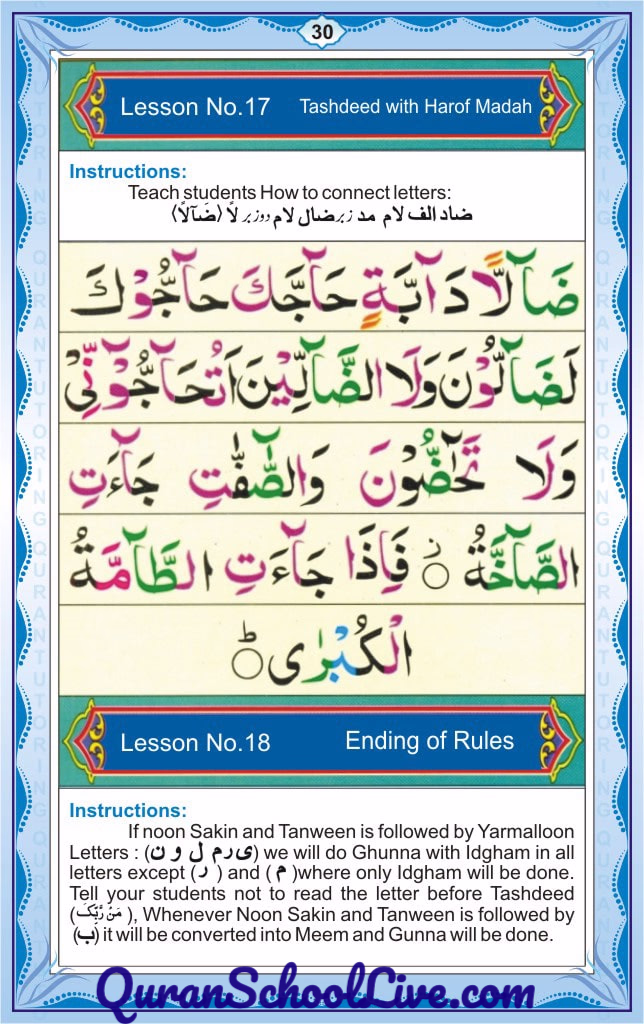 30
Lesson No.17 Tashdeed with Harof Madah
Instructions:
Teach students How to connect letters:
ضاد الف لام مد زبر ضال لام دوزبر لاً (ضَآلاً)
ضَآلًّا دَآبَّةٍ حَآجَّكَ حَآجُّوْكَ
لَضَآلُّوْنَ وَلَا الضَّآلِّيْنَ اَتُحَآجُّوْنِّىْ
وَلَا تَحٰٓضُّوْنَ وَالصّٰٓفّٰتِ جَآءَتِ
الصَّآخَّةُ ۝ز فَاِذَا جَآءَتِ الطَّآمَّةُ
الْكُبْرٰى ۝ط
Lesson No.18 Ending of Rules
Instructions:
If noon Sakin and Tanween is followed by Yarmalloon
Letters : (ی ر م ل و ن) we will do Ghunna with Idgham in all
letters except ( ر ) and ( م )where only Idgham will be done.
Tell your students not to read the letter before Tashdeed
(مَنْ رَّبُّكَ ), Whenever Noon Sakin and Tanween is followed by
(ب) it will be converted into Meem and Gunna will be done.
QuranSchoolLive.com
QURAN TUTORING QURAN TUTORING
QURAN TUTORING QURAN TUTORING